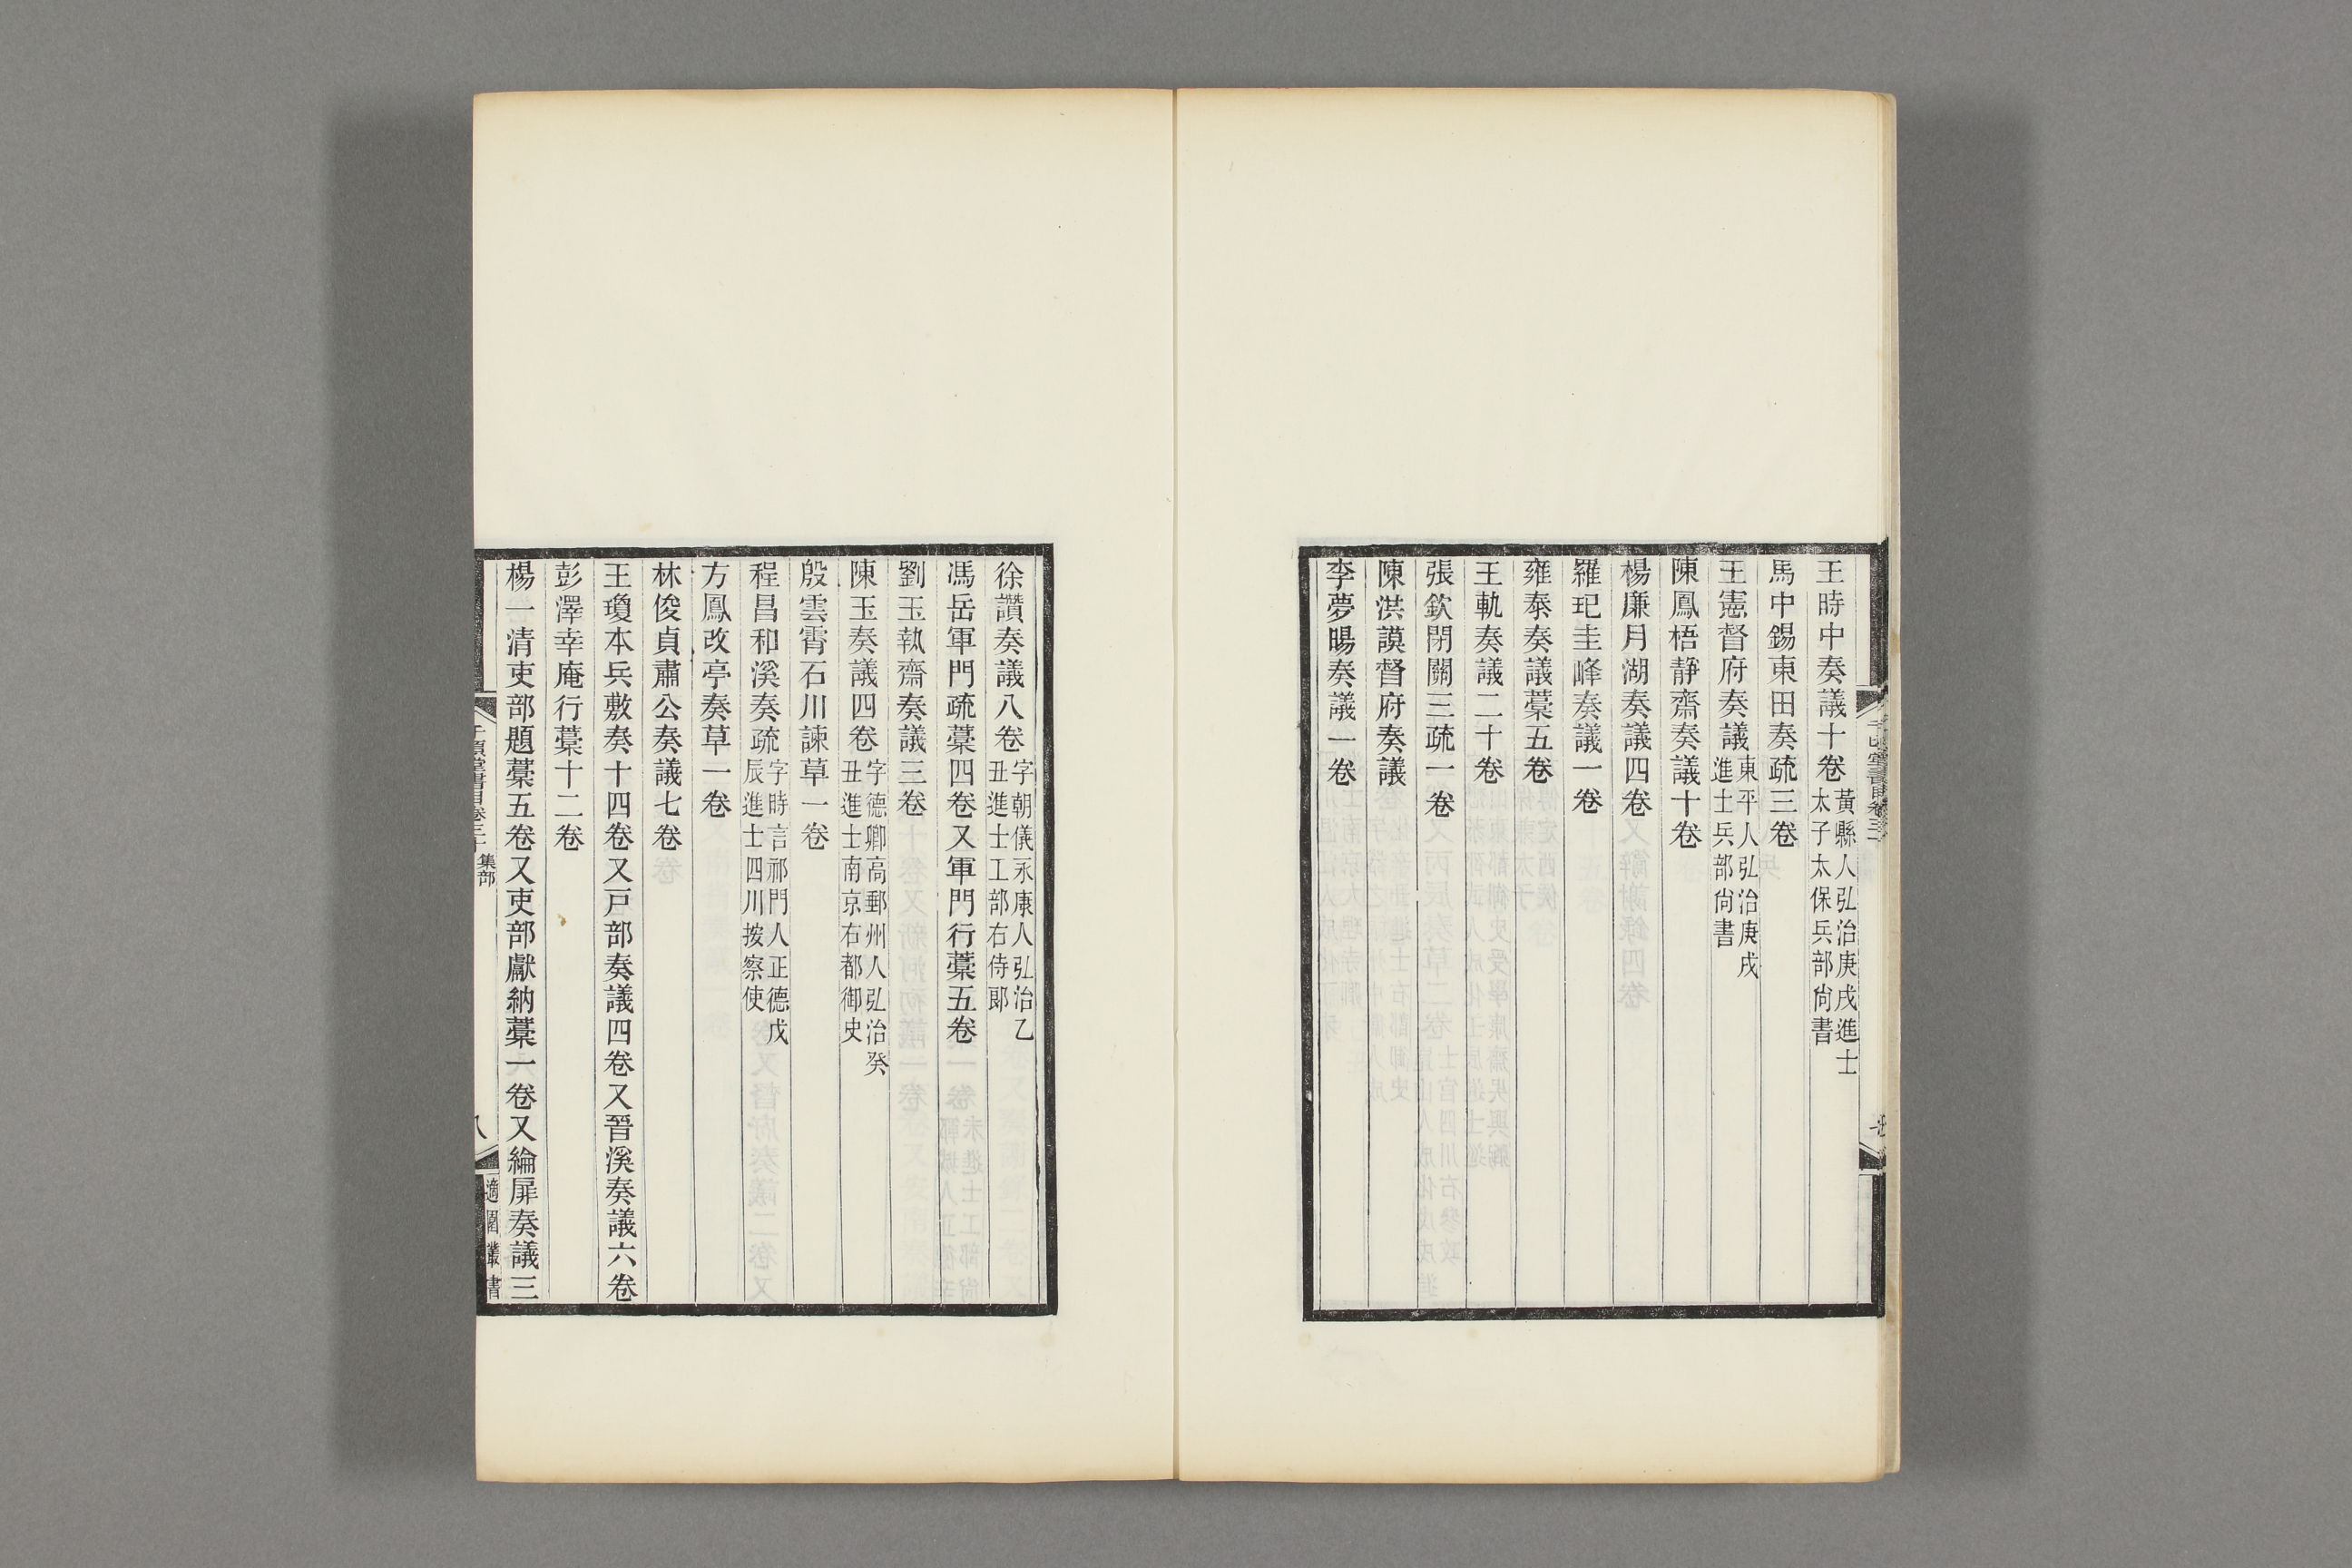 王時中奏議十卷黃縣人弘治庚戌進士太子太保兵部尚書
馬中錫東田奏疏三卷
王憲督府奏議東平人弘治庚戌進士兵部尚書
陳鳳梧靜齋奏議十卷
楊廉月湖奏議四卷
羅玘圭峰奏議一卷
雍泰奏議藁五卷
王軌奏議二十卷
張欽閉關三疏一卷
陳洪謨督府奏議
李夢暘奏議一卷
徐讚奏議八卷字朝儀永康人弘治乙丑進士工部右侍郞
馮岳軍門疏藁四卷又軍門行藁五卷
劉玉執齋奏議三卷
陳玉奏議四卷字德卿高郵州人弘治癸丑進士南京右都御史
殷雲霄石川諫草一卷
程昌和溪奏疏字時言祁門人正德戊辰進士四川按察使
方鳳改亭奏草一卷
林俊貞肅公奏議七卷
王瓊本兵敷奏十四卷又戸部奏議四卷又晉溪奏議六卷
彭澤幸庵行藁十二卷
楊一清吏部題藁五卷又吏部獻納藁一卷又綸扉奏議三
千頃堂書目卷三十 集部
八
適園叢書